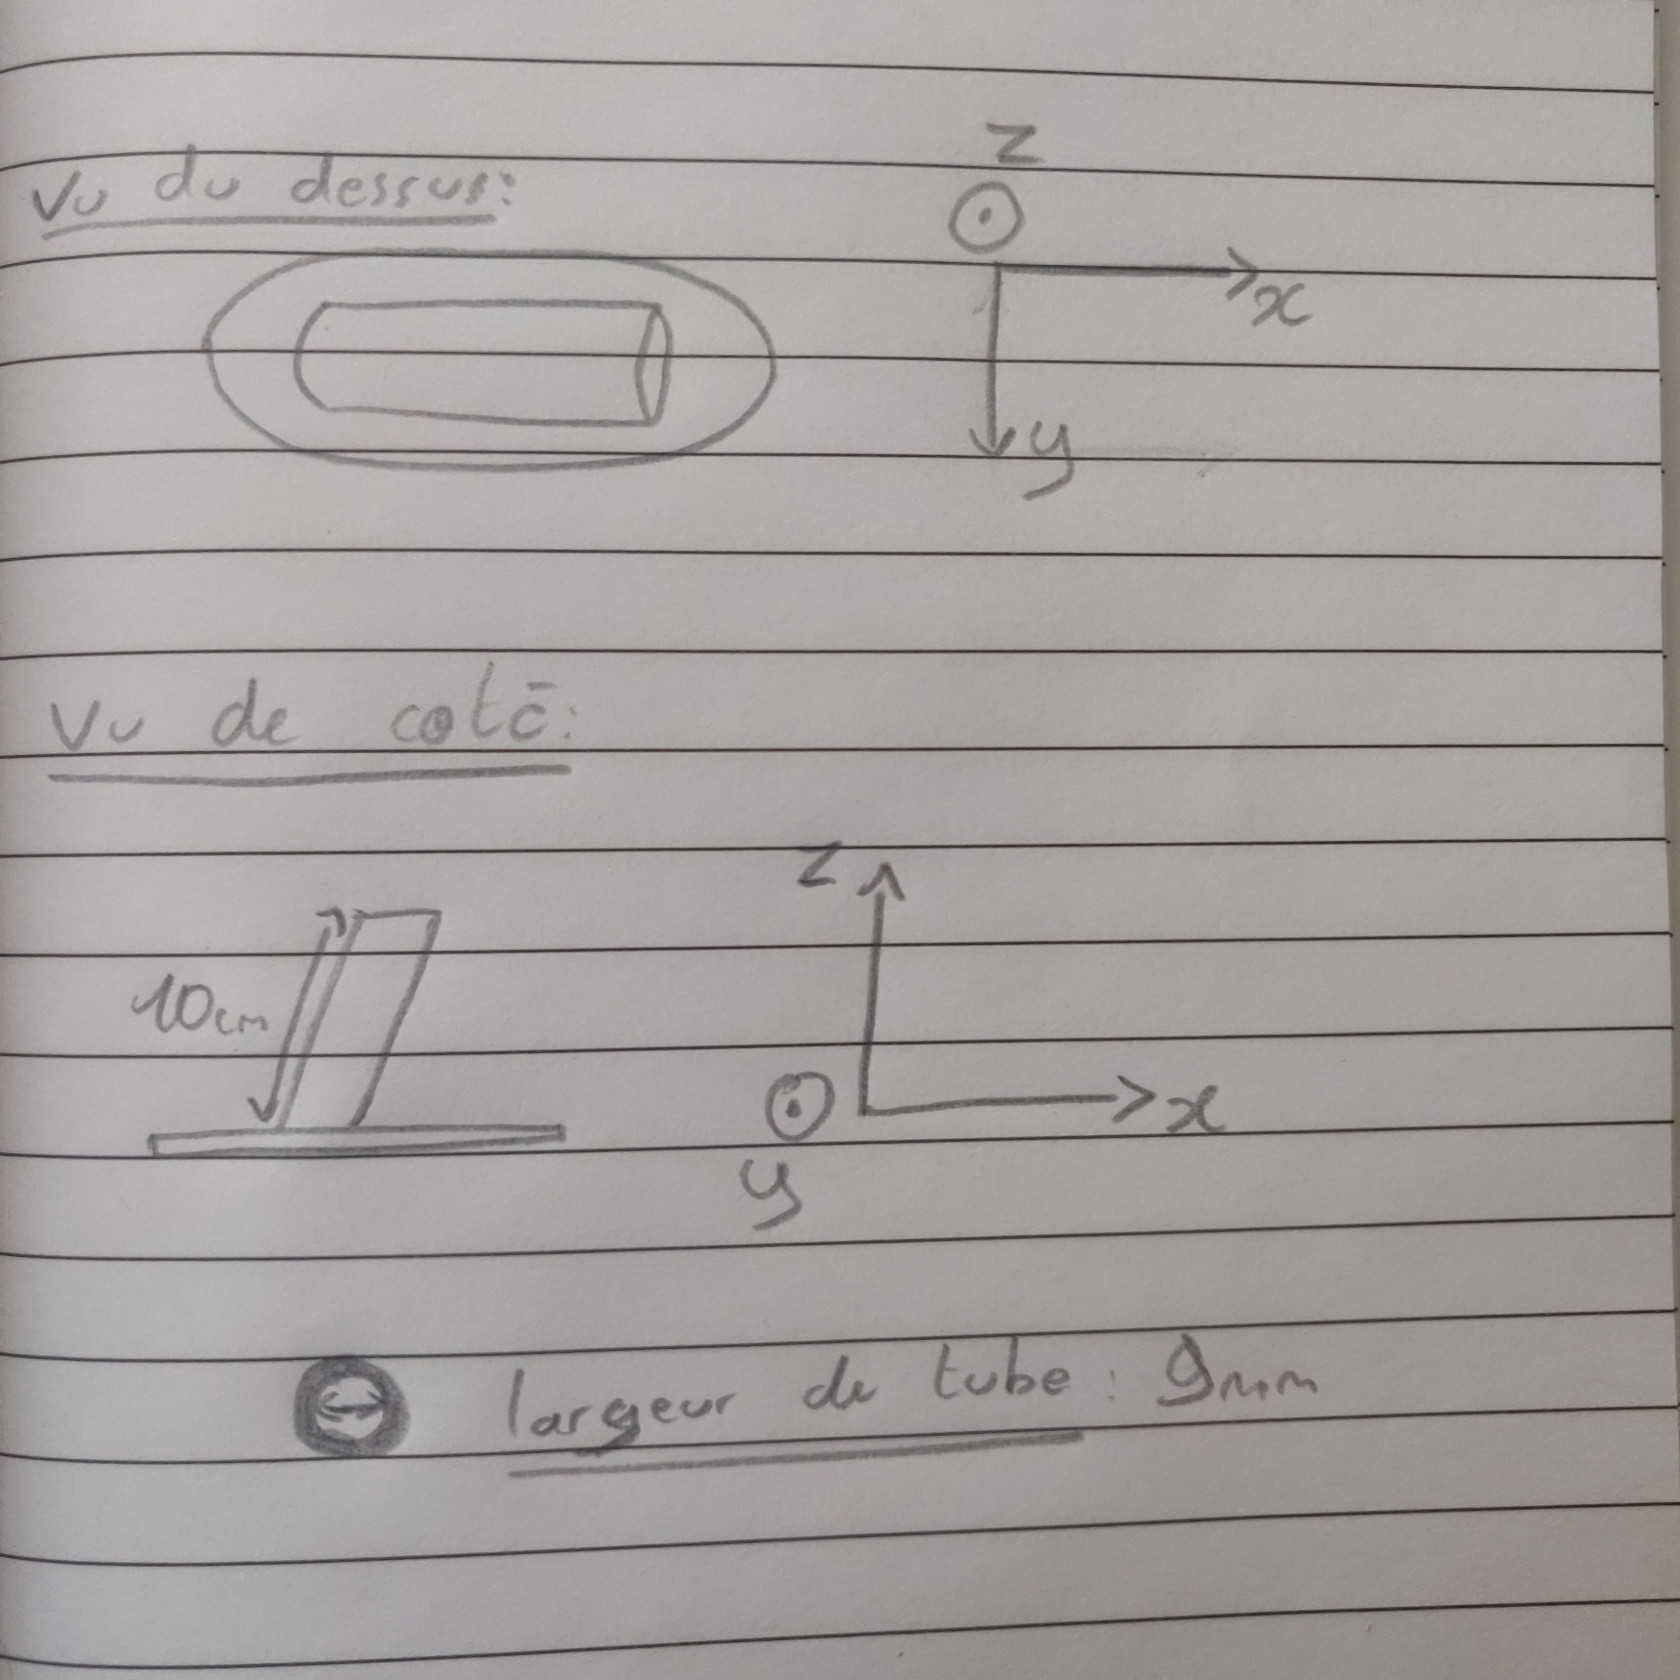 Vu du dessus:
z
x
y
Vu de coté:
z
10cm
x
y
largeur de tube : 9mm